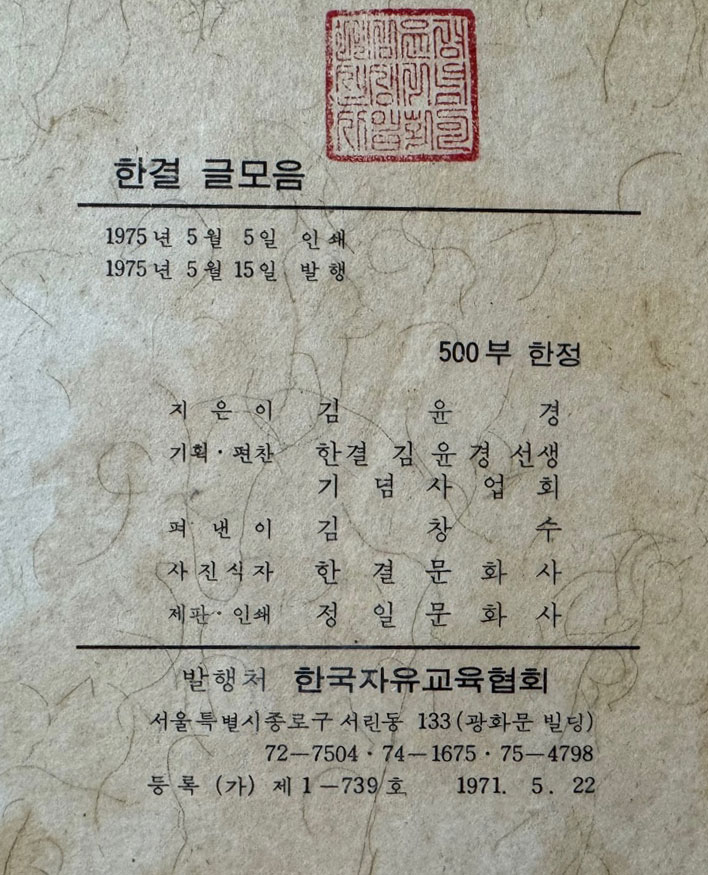 한결 글모음
1975년 5월 5일 인쇄
1975년 5월 15일 발행
500부 한정
지은이 김윤경
기획·편찬 한결 김윤경 선생
기념사업회
펴낸이 김창수
사진식자 한결문화사
제판·인쇄 정일문화사
발행처 한국자유교육협회
서울특별시종로구 서린동 133(광화문 빌딩)
72—7504·74—1675·75—4798
등록 (가) 제1—739호 1971. 5. 22